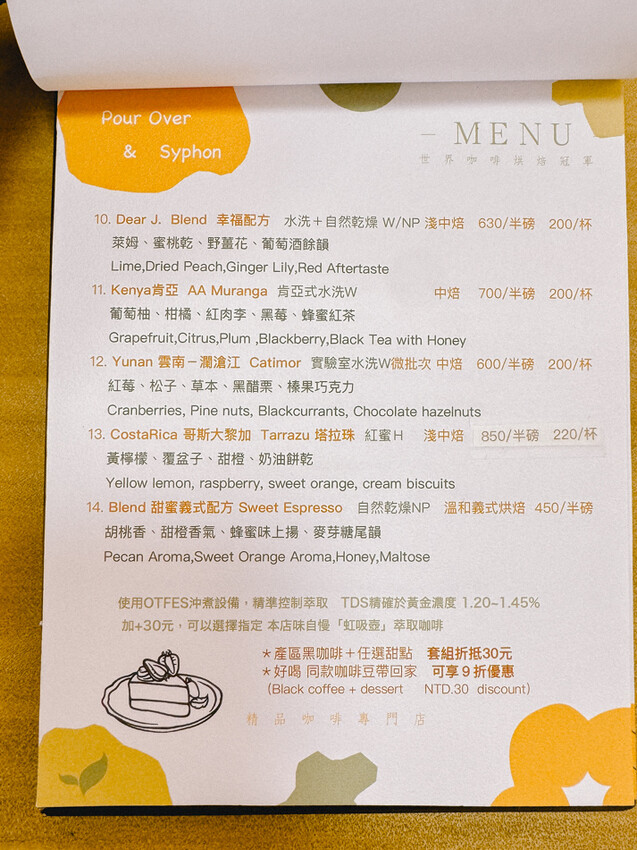 Pour Over
& Syphon
— MENU
世界咖啡烘焙冠軍
10. Dear J. Blend 幸福配方 水洗＋自然乾燥 W/NP 淺中焙 630/半磅 200/杯
萊姆、蜜桃乾、野薑花、葡萄酒餘韻
Lime,Dried Peach,Ginger Lily,Red Aftertaste
11. Kenya肯亞 AA Muranga 肯亞式水洗W 中焙 700/半磅 200/杯
葡萄柚、柑橘、紅肉李、黑莓、蜂蜜紅茶
Grapefruit,Citrus,Plum ,Blackberry,Black Tea with Honey
12. Yunan 雲南－瀾滄江 Catimor 實驗室水洗W微批次 中焙 600/半磅 200/杯
紅莓、松子、草本、黑醋栗、榛果巧克力
Cranberries, Pine nuts, Blackcurrants, Chocolate hazelnuts
13. CostaRica 哥斯大黎加 Tarrazu 塔拉珠 紅蜜H 淺中焙 850/半磅 220/杯
黃檸檬、覆盆子、甜橙、奶油餅乾
Yellow lemon, raspberry, sweet orange, cream biscuits
14. Blend 甜蜜義式配方 Sweet Espresso 自然乾燥NP 溫和義式烘焙 450/半磅
胡桃香、甜橙香氣、蜂蜜味上揚、麥芽糖尾韻
Pecan Aroma,Sweet Orange Aroma,Honey,Maltose
使用OTFES沖煮設備，精準控制萃取 TDS精確於黃金濃度 1.20~1.45%
加+30元，可以選擇指定 本店味自慢「虹吸壺」萃取咖啡
＊產區黑咖啡＋任選甜點 套組折抵30元
＊好喝 同款咖啡豆帶回家 可享９折優惠
(Black coffee + dessert NTD.30 discount)
精品咖啡專門店